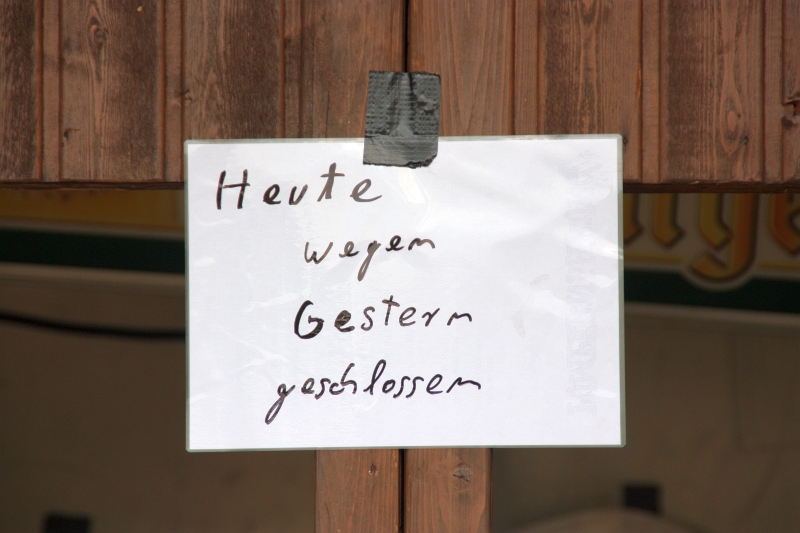 Heute
wegen
Gestern
geschlossen